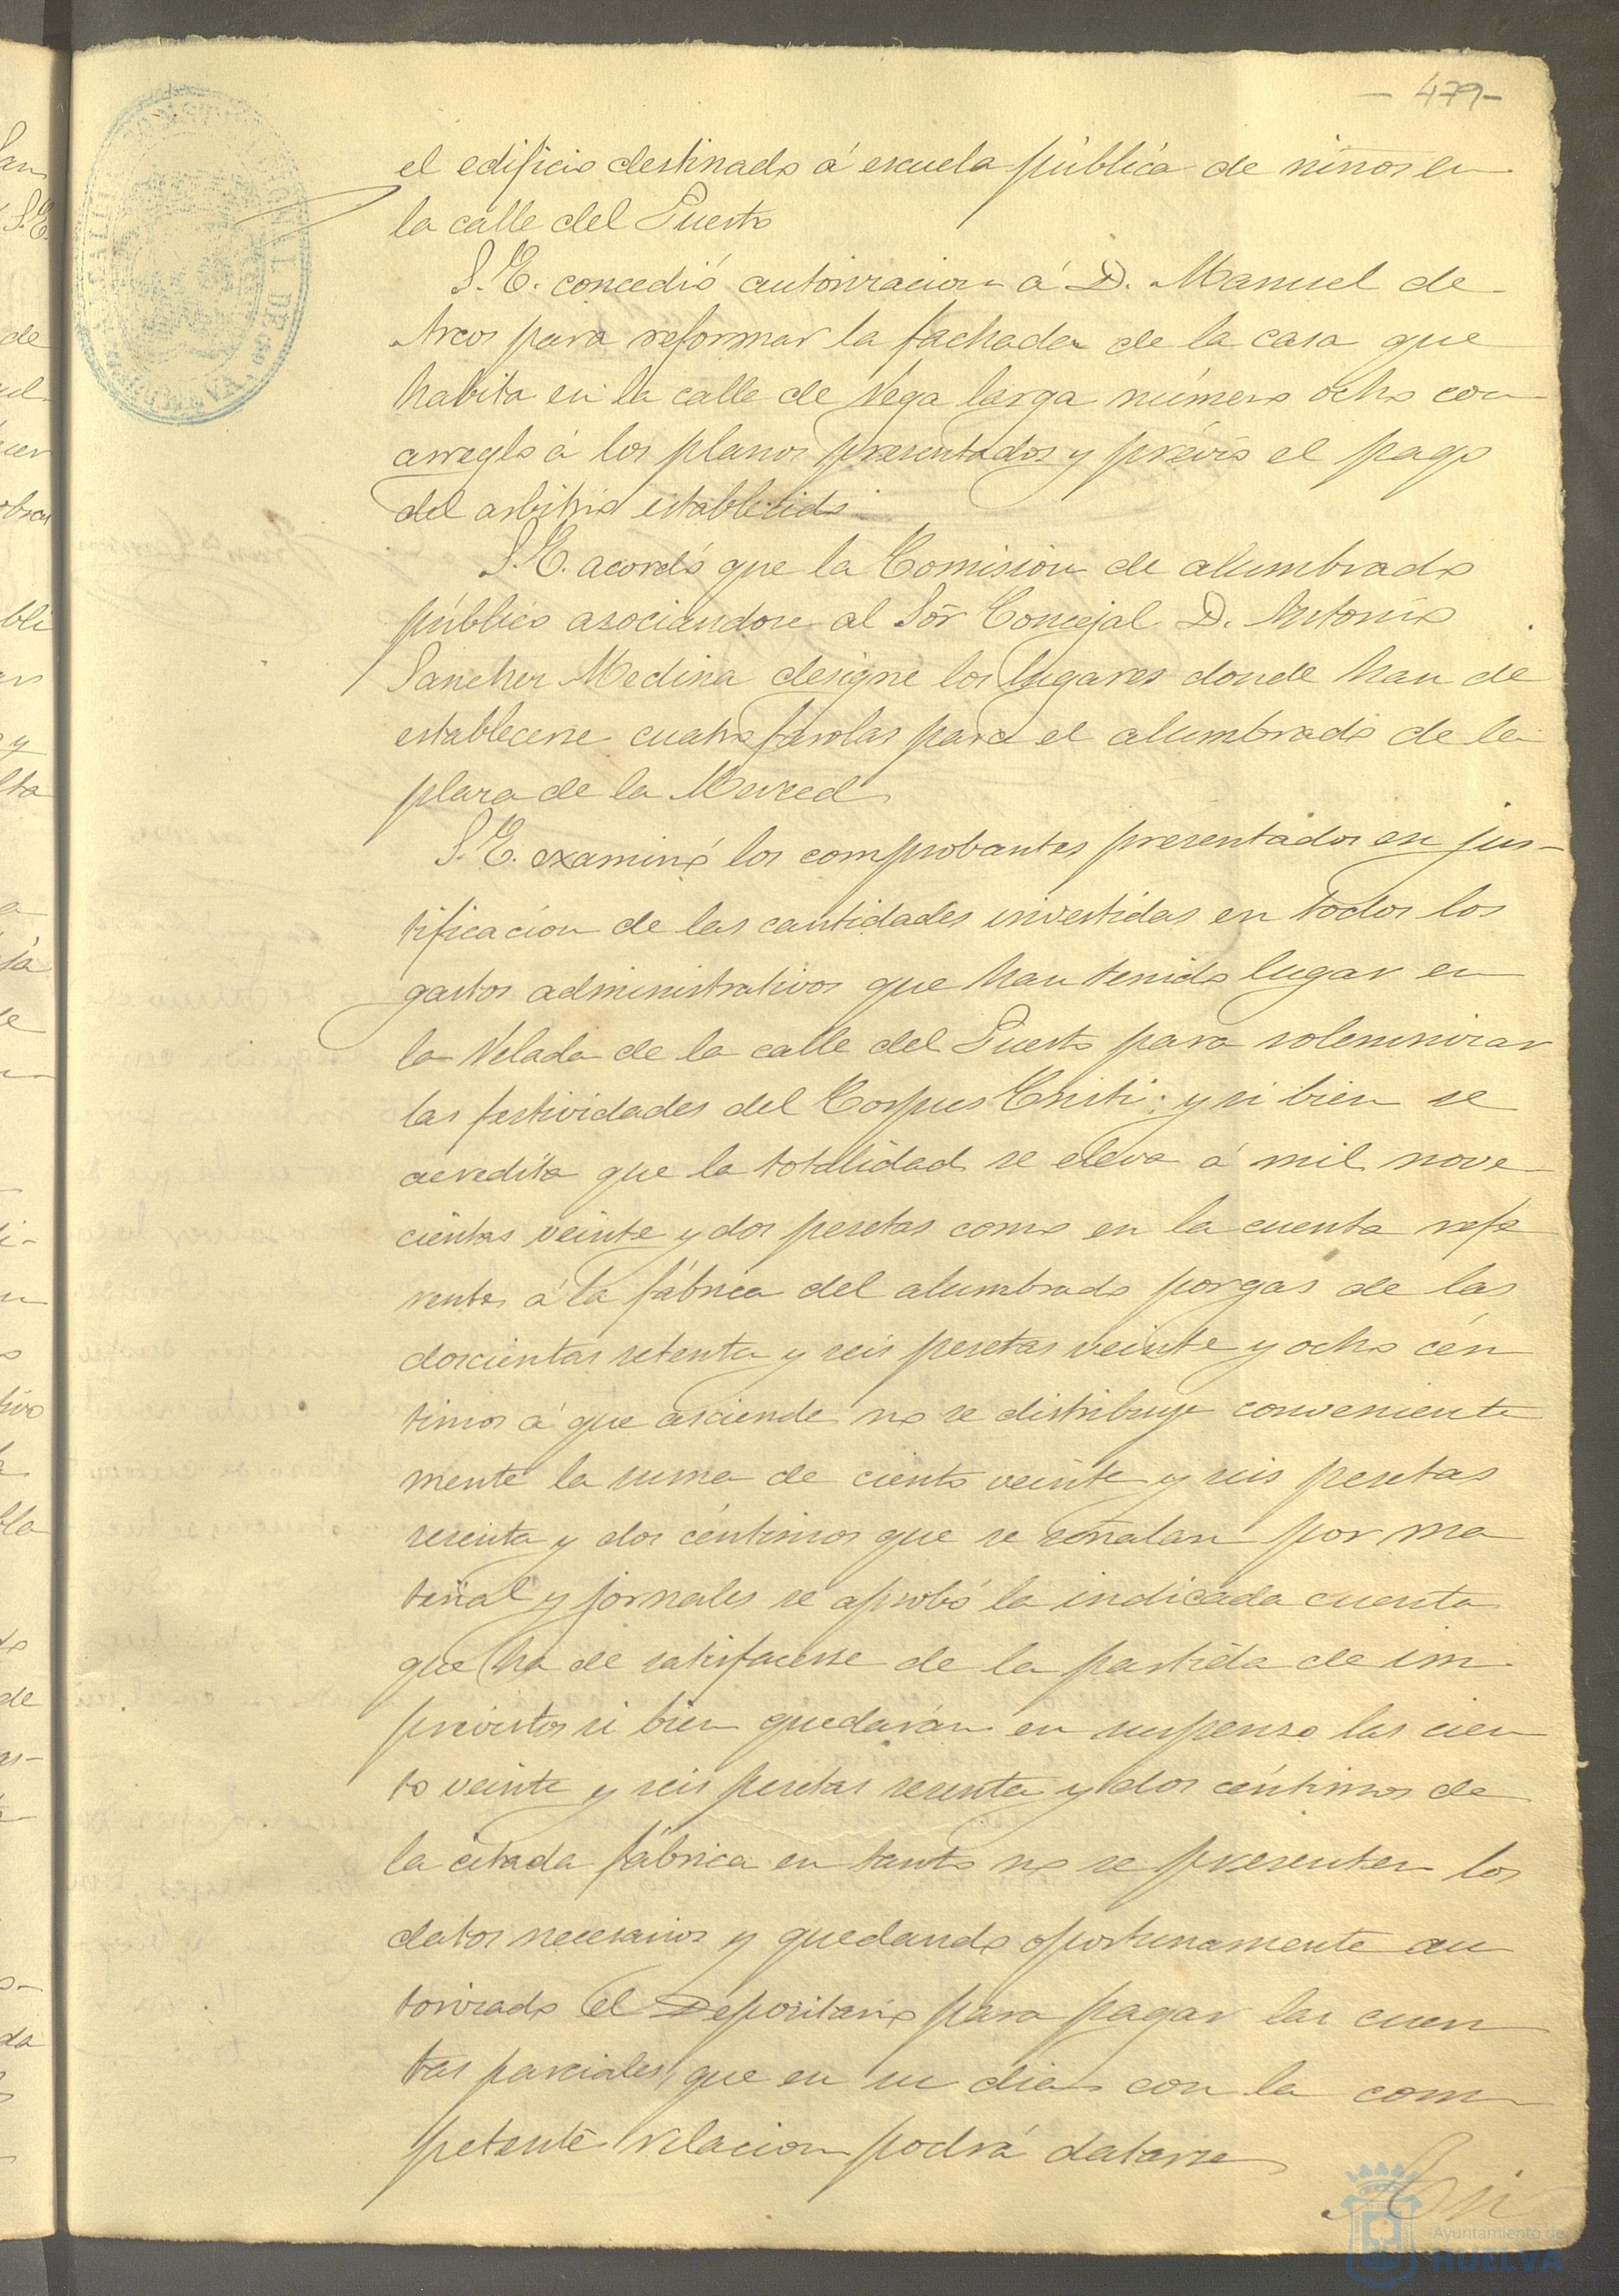 - 479 -
el edificio destinado á escuela pública de niños en
la calle del Puerto
S. E. concedió autorizacion á D. Manuel de
Arcos para reformar la fachada de la casa que
habita en la calle de Vega larga número ocho con
arreglo á los planos presentados y prévio el pago
del arbitrio establecido.
S. E. acordó que la Comision de alumbrado
público asociandose al Sör Concejal D. Antonio
Sanchez Medina designe los lugares donde han de
establecerse cuatro farolas para el alumbrado de la
plaza de la Merced
S. E. examinó los comprobantes presentados en jus-
tificacion de las cantidades invertidas en todos los
gastos administrativos que han tenido lugar en
la Velada de la calle del Puerto para solemnizar
las festividades del Corpus Cristi; y si bien se
acredita que la totalidad se eleva á mil nove
cientas veinte y dos pesetas como en la cuenta refe
rente á la fábrica del alumbrado por gas de las
doscientas setenta y seis pesetas veinte y ocho cén
timos á que asciende no se distribuye conveniente
mente la suma de ciento veinte y seis pesetas
sesenta y dos céntimos que se señalan por ma
terial y jornales se aprobó la indicada cuenta
que ha de satisfacerse de la partida de im
previstos si bien quedarán en suspenso las cien
to veinte y seis pesetas sesenta y dos céntimos de
la citada fábrica en tanto no se presenten los
datos necesarios y quedando oportunamente au
torizado el Depositario para pagar las cuen
tas parciales, que en su dia con la com
petente relacion podrá datarse
Ayuntamiento de
HUELVA